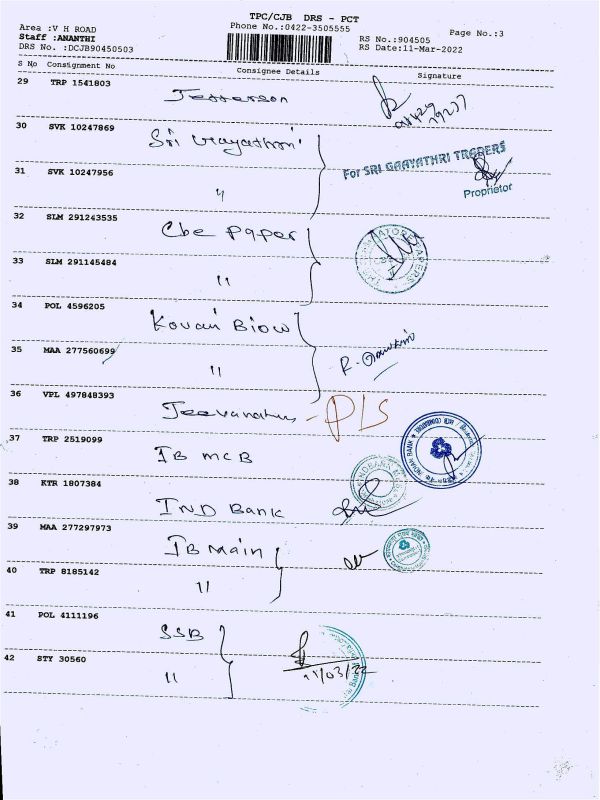 TPC/CJB DRS - PCT
Area :V H ROAD
Phone No.:0422-3505555
Page No.:3
Staff :ANANTHI
RS No.:904505
DRS No. :DCJB90450503
RS Date:11-Mar-2022
S No Consignment No Consignee Details Signature
29 TRP 1541803 Jefferson
30 SVK 10247869 Sri Gayathri
For SRI GAAYATHRI TRADERS
31 SVK 10247956 "
Proprietor
32 SLM 291243535 Cbe Paper
33 SLM 291145484 "
34 POL 4596205 Kovai
35 MAA 277560699 "
36 VPL 497848393 PLS
37 TRP 2519099 IB MCB
38 KTR 1807384 IND Bank
39 MAA 277297973 IB Main
40 TRP 8185142 "
41 POL 4111196 SSB
42 STY 30560 "
11/03/22